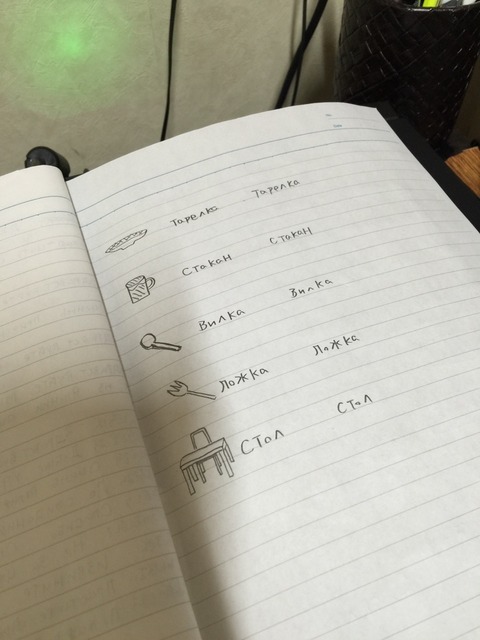 тарелка тарелка
стакан стакан
вилка вилка
ложка ложка
стол стол